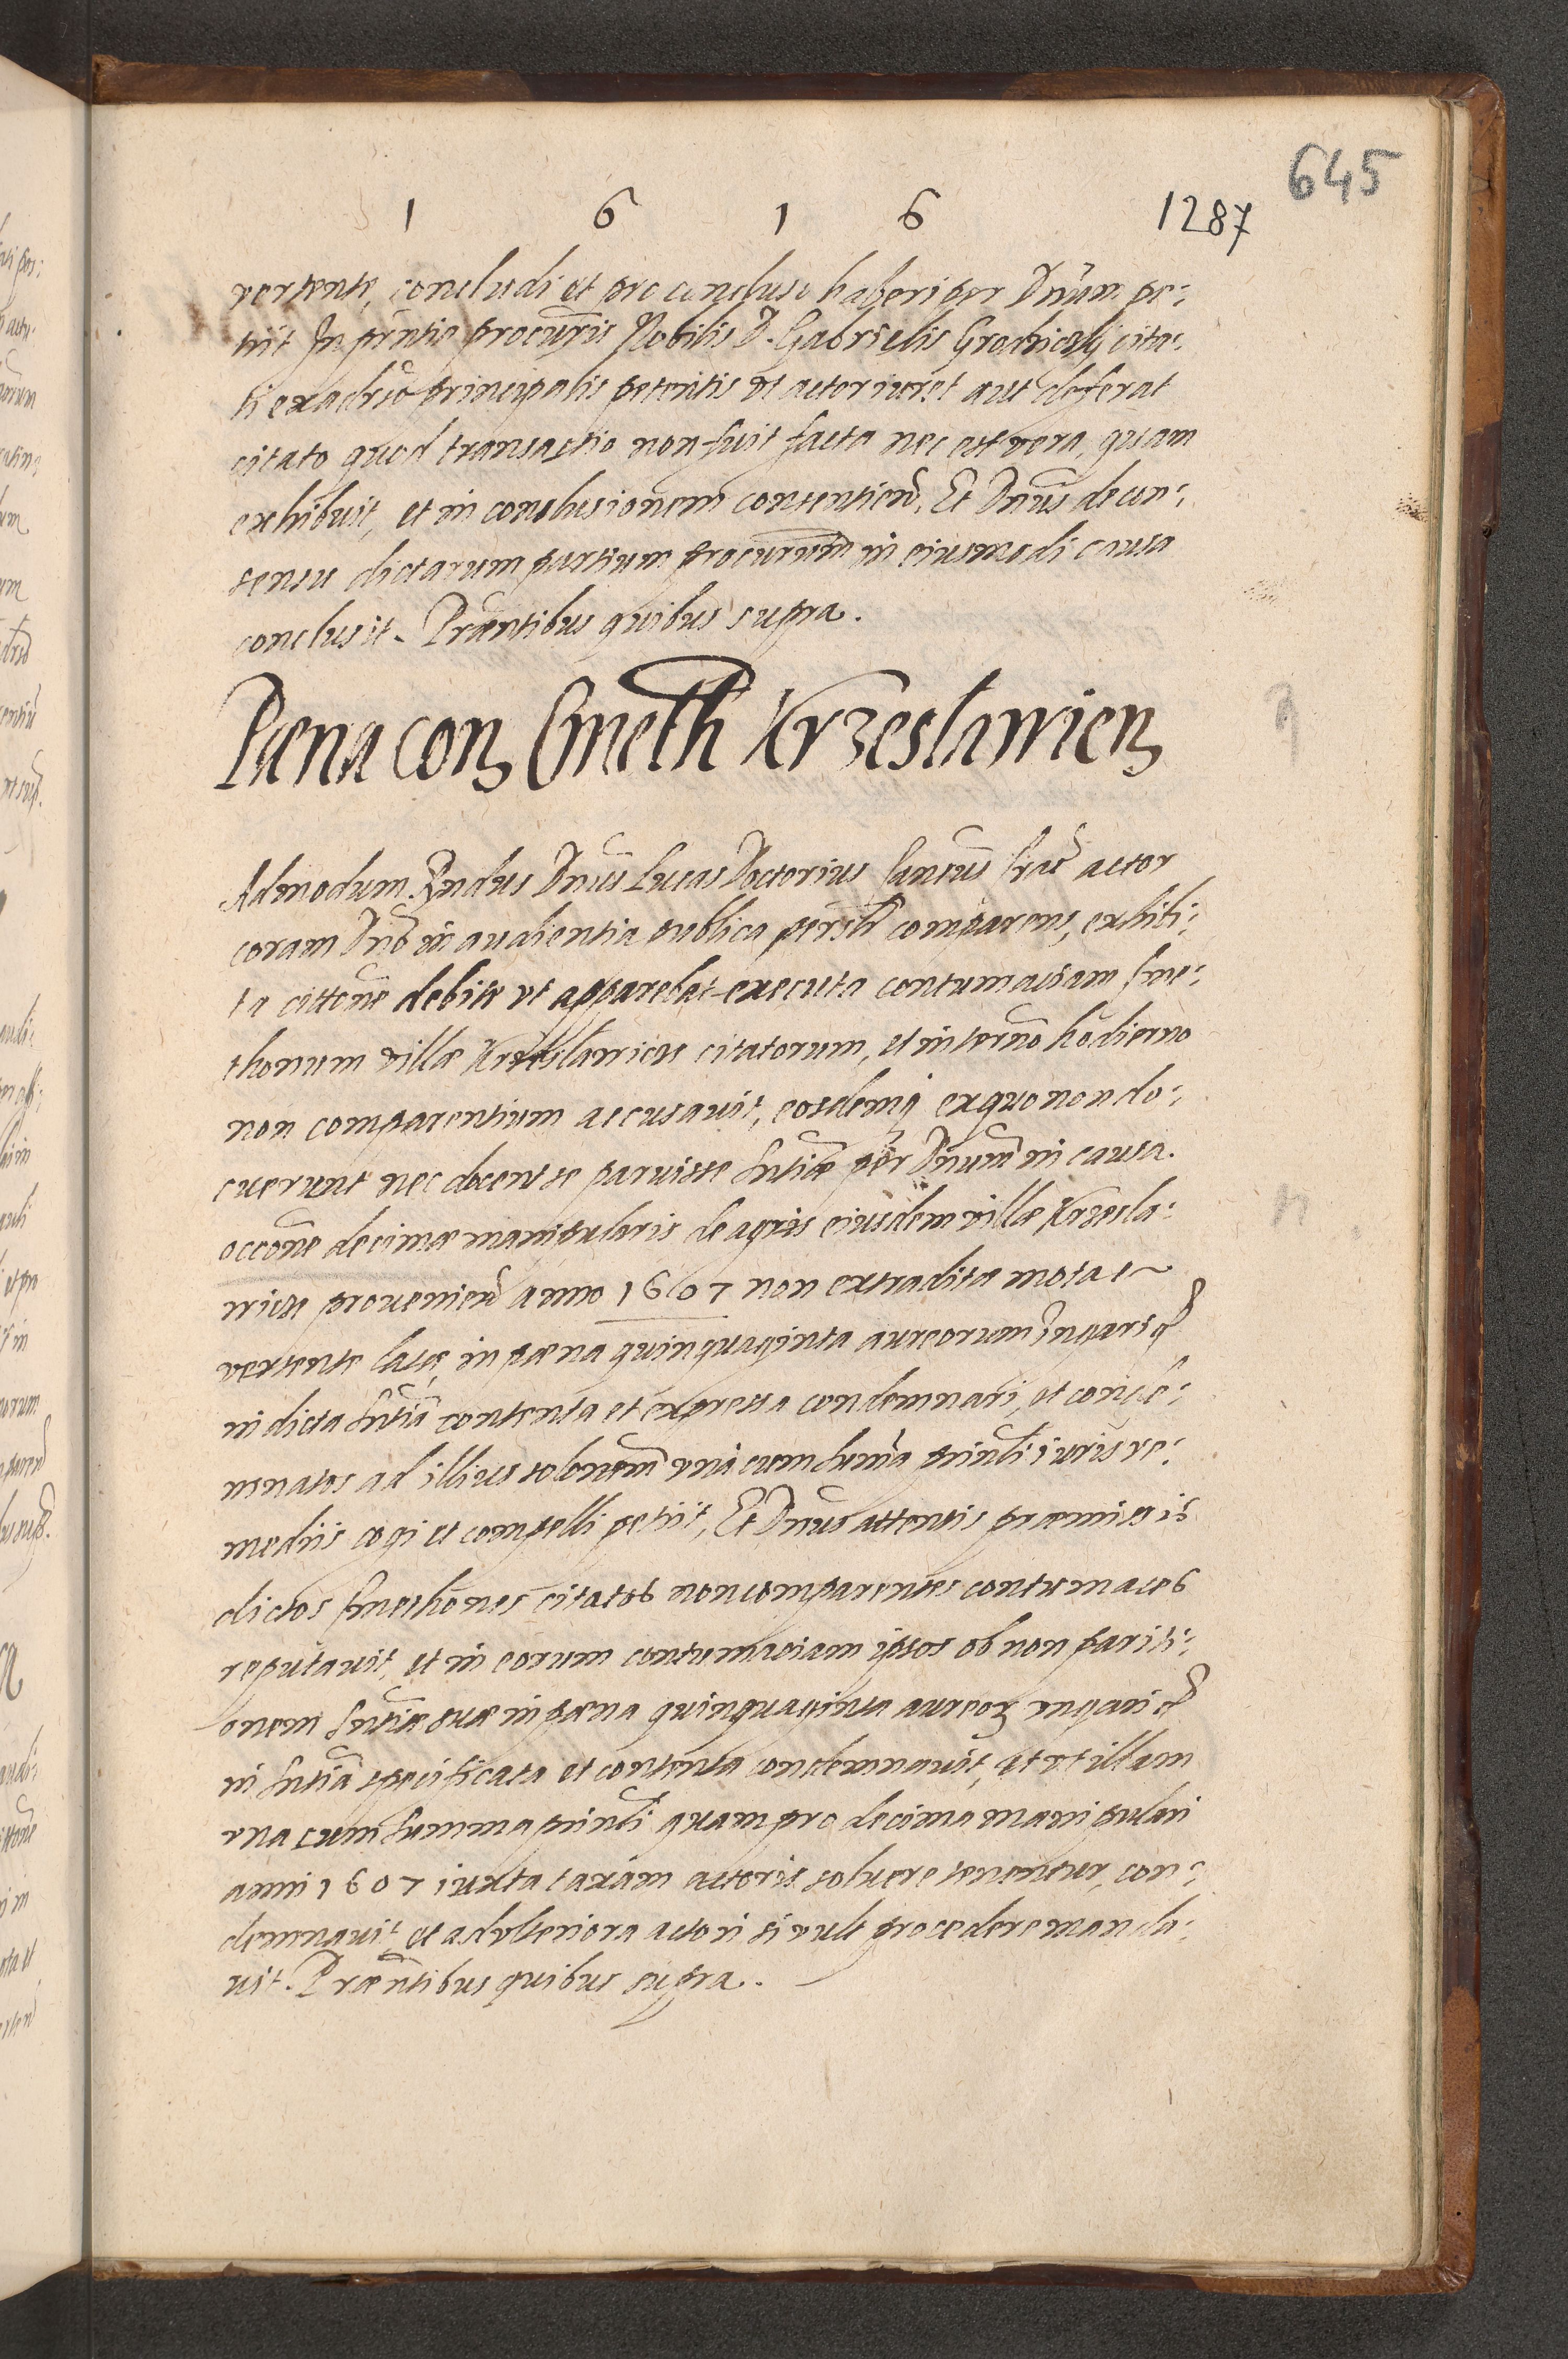 645
1 6 1 6 1287
vertente, concludi et pro concluso haberi per Dnum pe:
tiit In pñtia procuris Nobilis D. Gabrielis Grodzicky cita:
ti ex adrso principalis petentis ut actor iuret aut deferat
citato quod transactio non fuit facta nec est vera, quam
exhibuit, et in conclusionem consentien. Et Dnus de con:
sensu dictarum partium procurum in eiusmodi causa
conclusit. Præntibus quibus supra.
Pæna con Cmeth Krzeslawien
Admodum Rndus Dnus Lucas Doctorius Cancus Crac actor
coram Dno in audientia publica persltr comparens, exhibi:
ta cittone debite ut apparebat executa contumaciam Cme:
thonum villæ Krzeslawice citatorum, et in termo hodierno
non comparentium accusavit, eosdemq ex quo non do:
cuerunt nec docent se paruisse Sntiæ per Dnum in causa
occone decimæ manipularis de agris eiusdem villæ Krzesla:
wice provenien anno 1607 non extraditæ mota et
vertente latæ, in pæna quinquaginta aureorum ungaric
in dicta Sntia contenta et expressa condemnari, et conde:
mnatos ad illius solonem una cum summa prinli iuris re:
mediis cogi et compelli petiit, Et Dnus attentis præmissis
dictos Cmethones citatos non comparentes contumaces
reputavit, et in eorum contumaciam ipsos ob non pariti:
onem Sntiæ suæ in pæna quinquaginta aureor ungaric
in Sntia specificata et contenta condemnavit, et ut illam
una cum summa prinli quam pro decima manipulari
anni 1607 iuxta taxam actoris solvere tenentur, con:
demnavit, et ad ulteriora actori si vult procedere manda:
vit. Præntibus quibus supra.